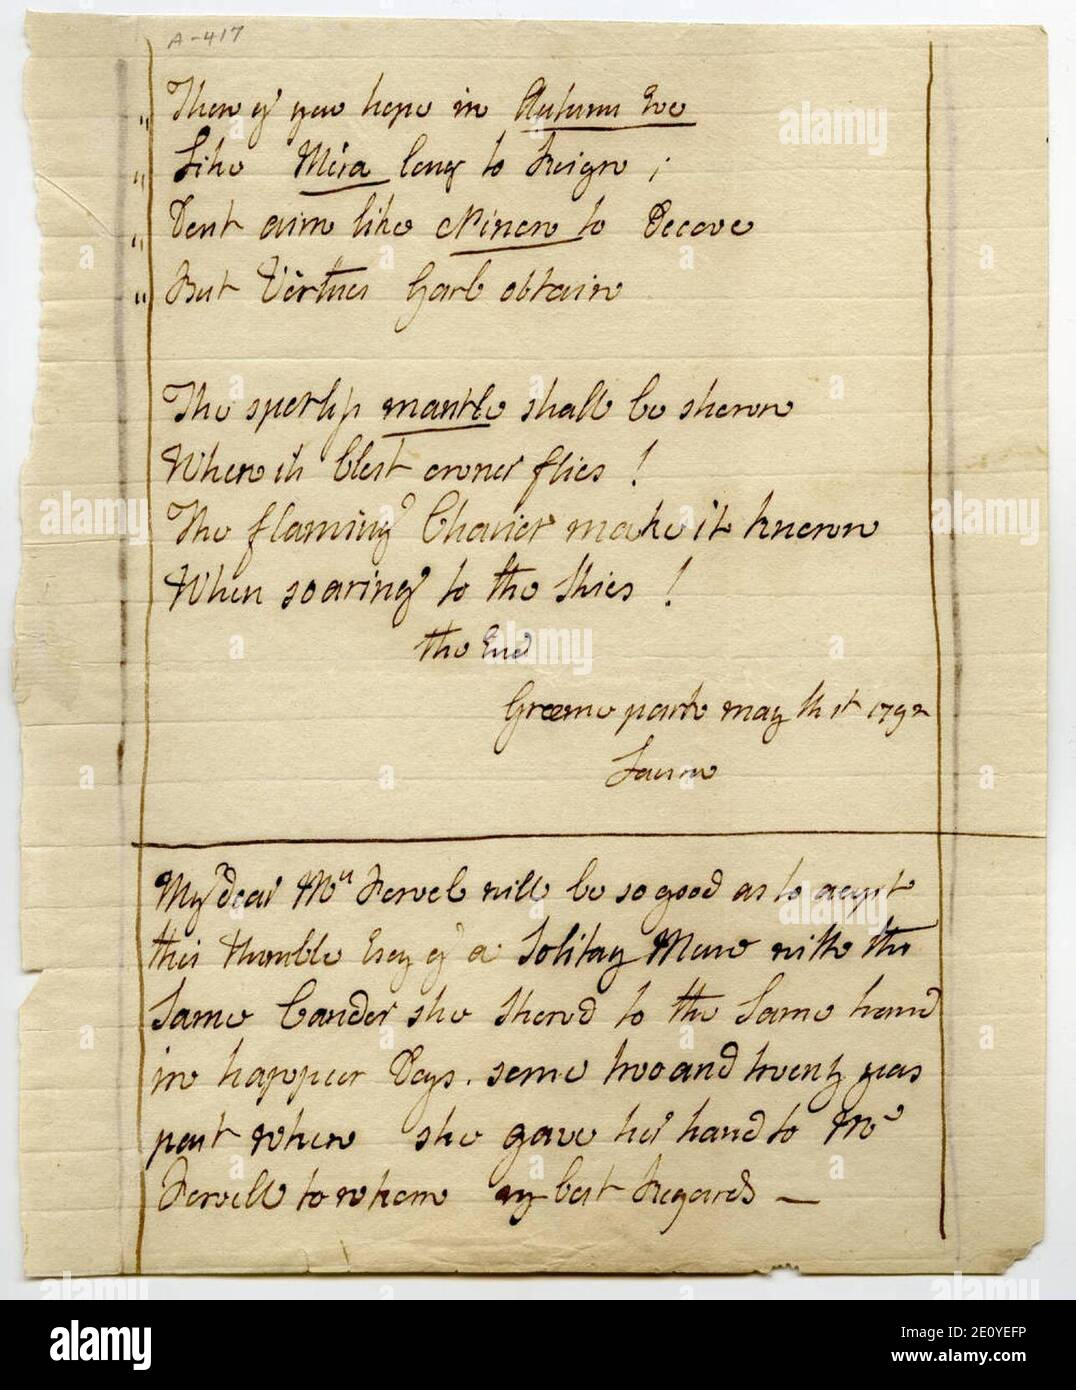 A-417
" Then if you hope in Autumn Eve
" Like Mira long to Reign ;
" Dont aim like Ninon to Deceve
" But Virtues Garb obtain
The spotless mantle shall be shown
When its blest owner flies !
The flaming Chariot make it known
When soaring to the Skies !
the End
Greene park may th 1st 1792
My dear Mrs will be so good as to acept
this Humble Esay of a Solitay Muse with the
Same Candor she Showd to the Same hand
in happier Days. some two and twenty years
past when she gave her hand to Mr
to whom my best Regards —
alamy
Image ID: 2E0YEFP
www.alamy.com